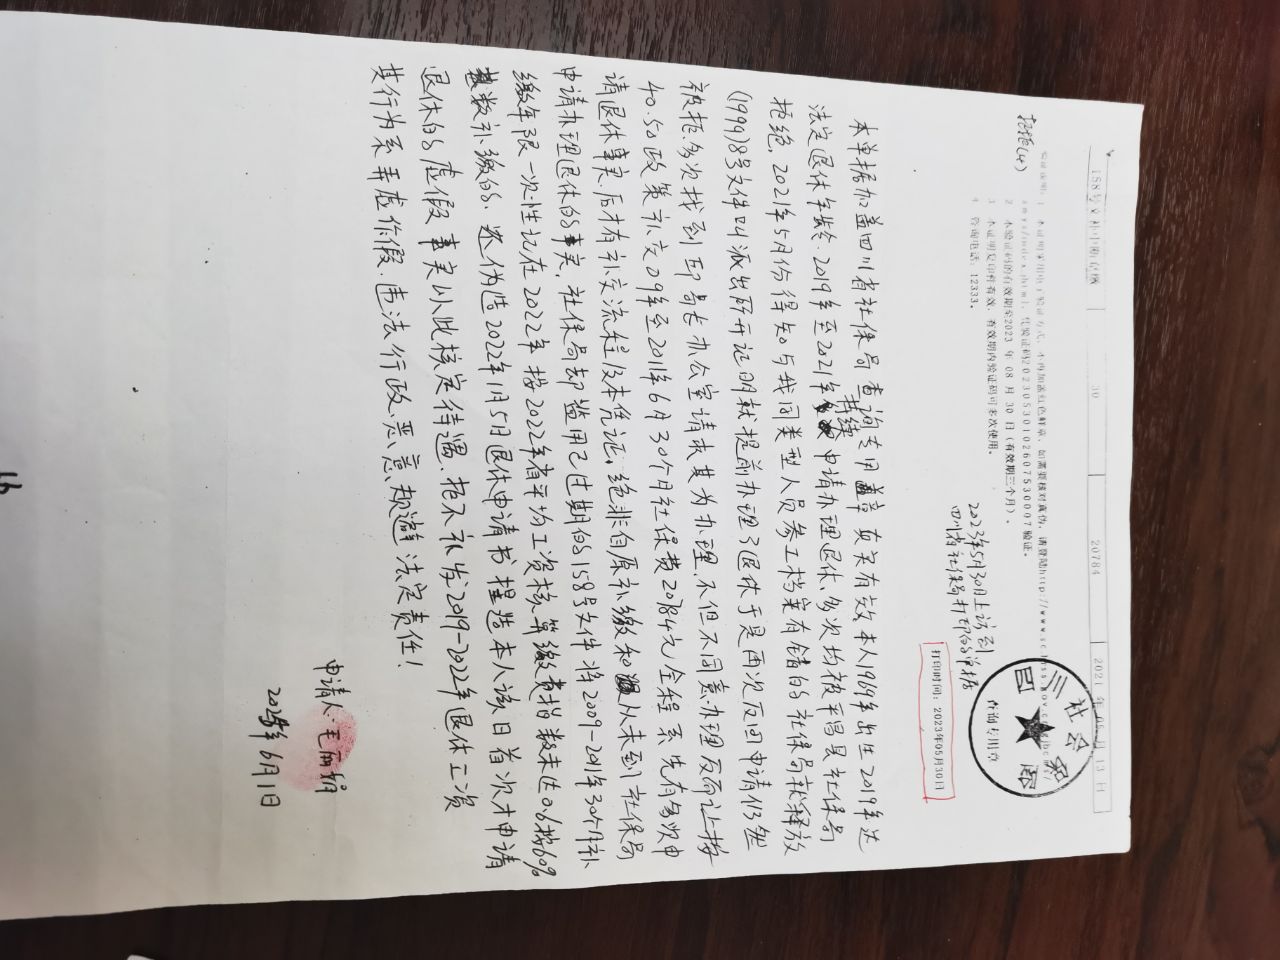 158号文补中断息缴 30 20784 2021年05月13日
证说明：1. 本证明采用电子验证方式，不再加盖红色鲜章。如需要核对真伪，请登陆http://www.sc.hrss.gov.cn
index.html，凭验证码20230530102607530007验证。
2. 本验证码的有效期至2023年08月30日（有效期三个月）。
3. 本证明复印件有效，有效期内验证码可多次使用。
4. 咨询电话：12333。
2023年5月30日上访到
四川省社保局打印的单据
打印时间：2023年05月30日
社会
查询专用章
本单据加盖四川省社保局查询专用章真实有效本人1969年出生2019年达
法定退休年龄、2019年至2021年持续申请办理退休、多次均被平昌县社保局
拒绝，2021年5月份得知与我同类型人员参工档案有错的社保局就释放
(1999)8号文件叫派出所开证明就提前办理了退休于是再次反回申请仍然
被拒、多次找到邱局长办公室请求其为办理、不但不同意办理反而让按
40.50政策补交09年至2011年6月30个月社保费20784元全程系先有多次申
请退休事实、后才有补交流程及本凭证，绝非自原补缴和从未到社保局
申请办理退休的事实，社保局却监用已过期的158号文件将2009-2011年30个月补
缴年限一次性记在2022年按2022年省平均工资核算缴费指数未达0.6按60%
基数补缴的、还伪造2022年1月5日退休申请书捏造本人该日首次才申请
退休的虚假事实以此核定待遇、拒不补发2019-2022年退休工资
其行为系弄虚作假、违法行政、恶意规避法定责任！
申请人：毛丽娟
2025年6月1日
16